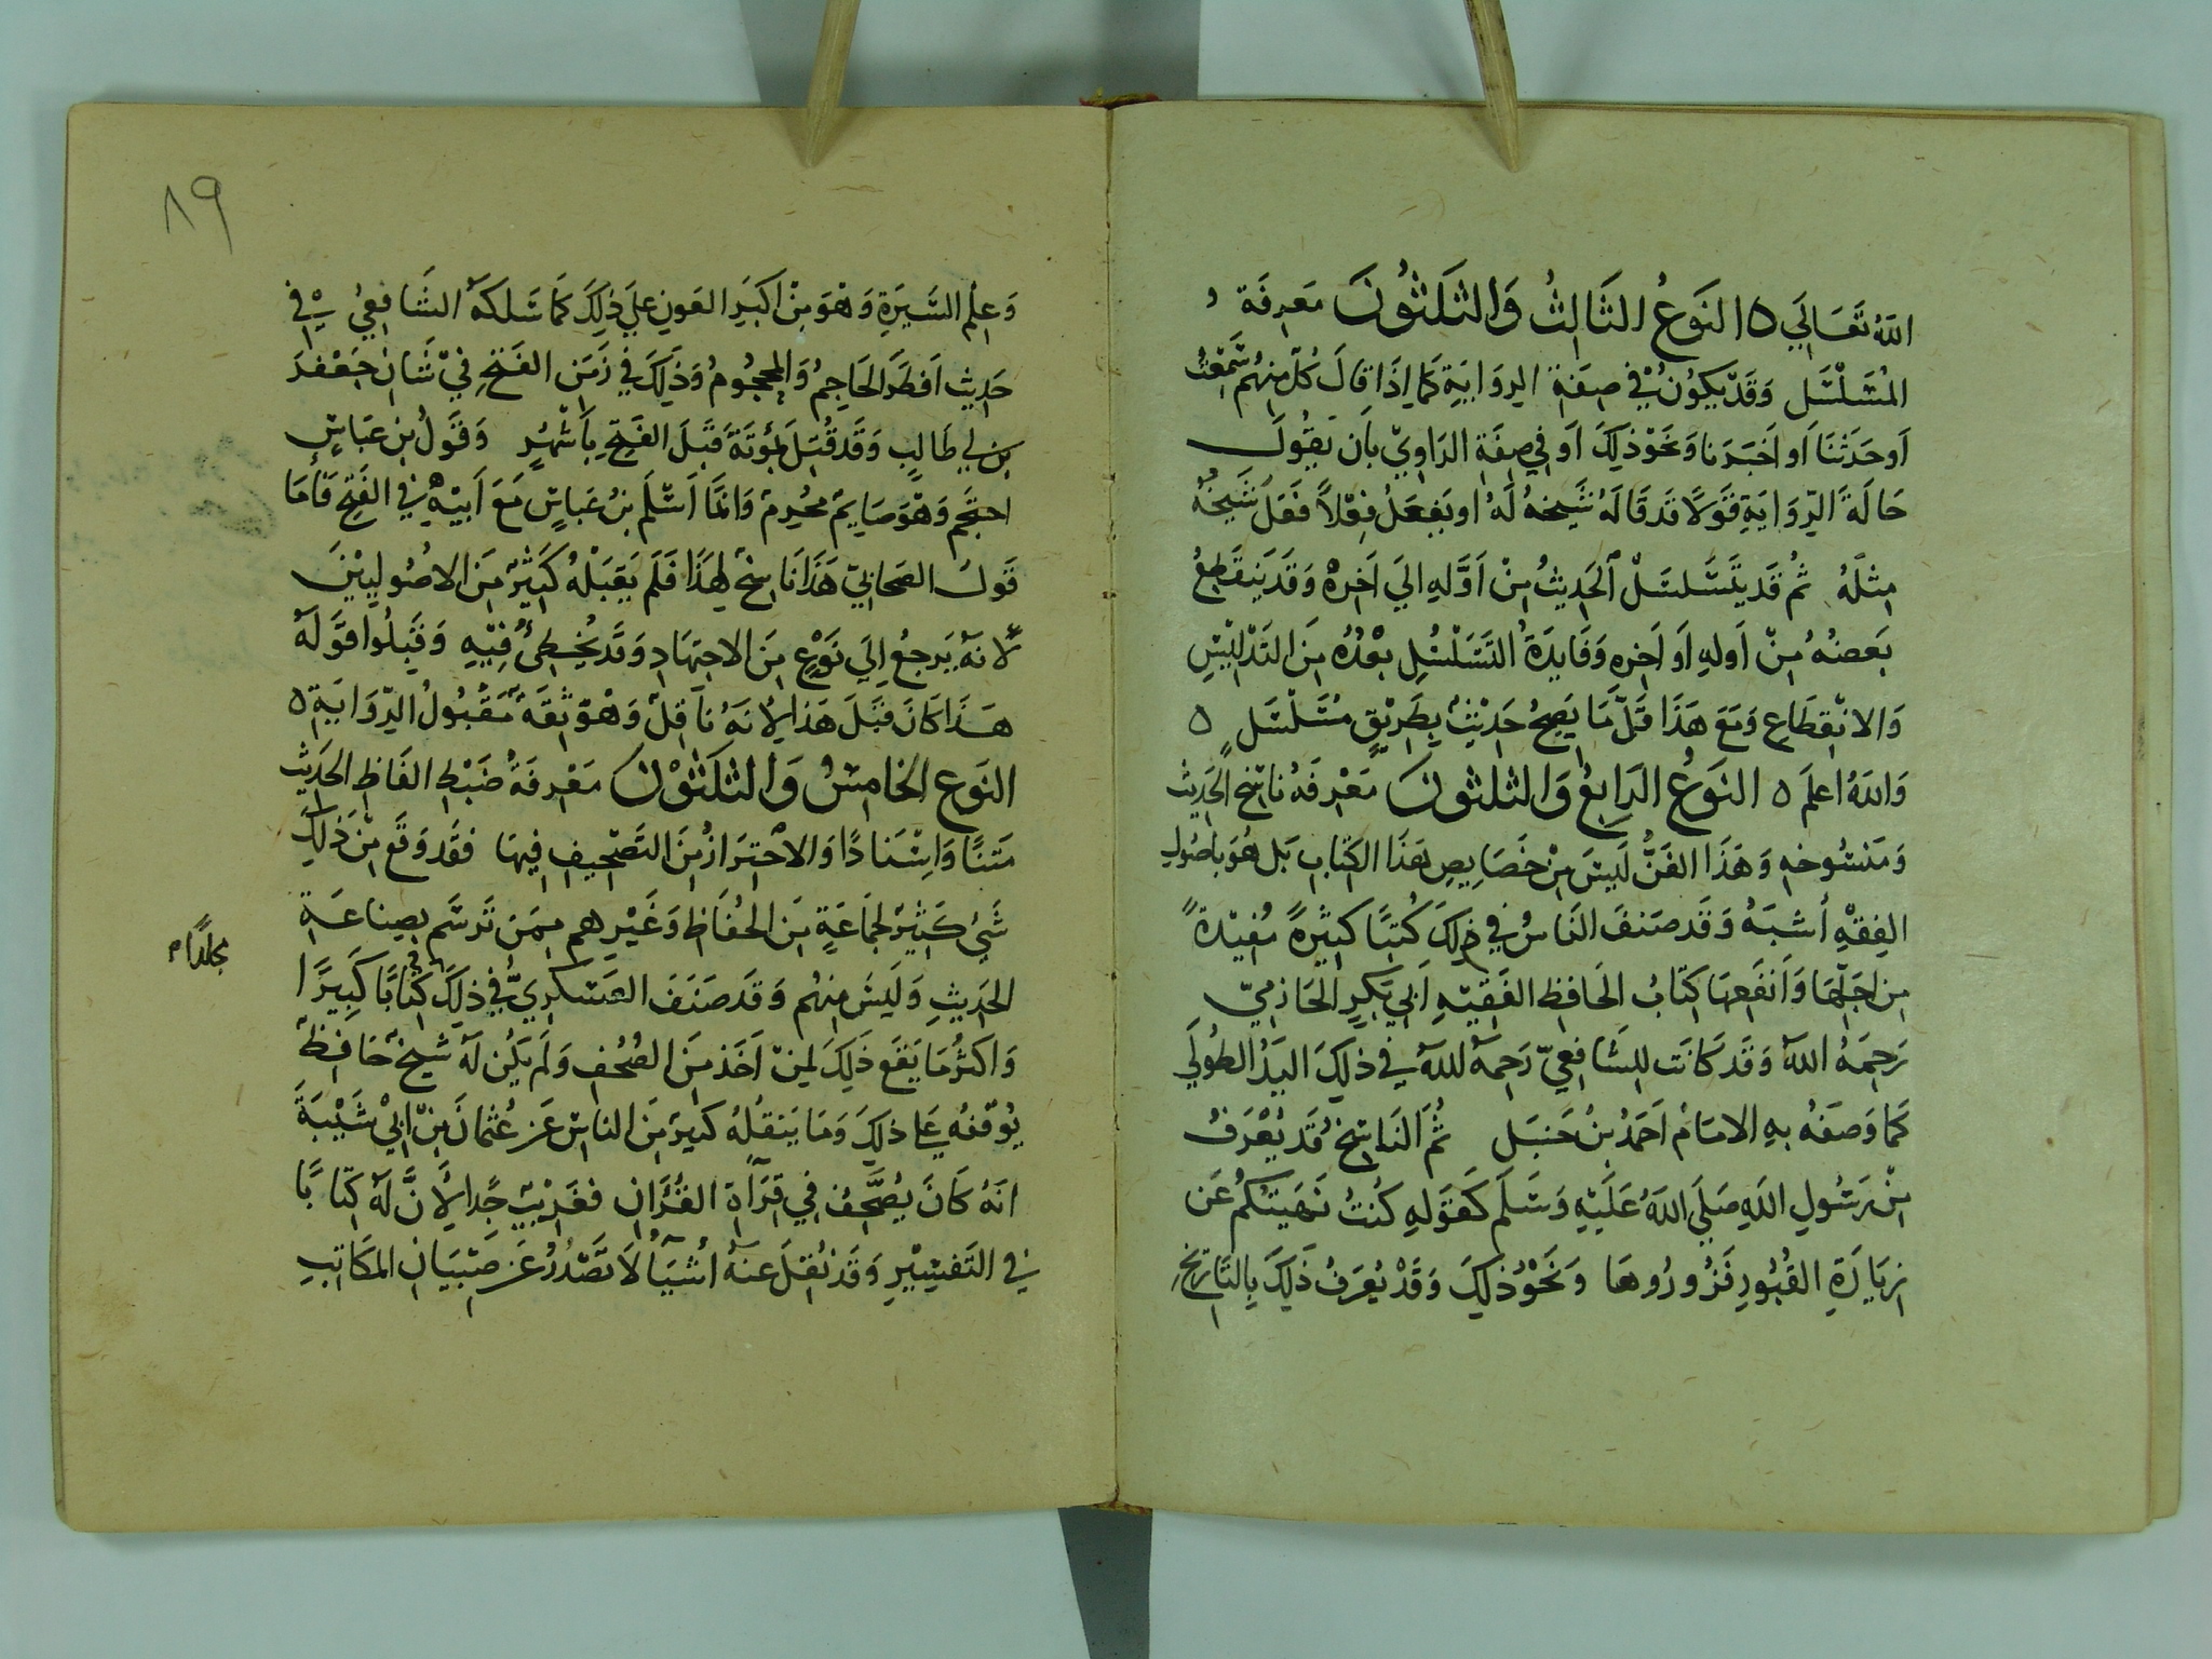 الله تَعَالَي ٥ النَوعُ الثَالِثُ وَالثلثُونَ مَعرِفَة
المُسَلْسَل وَقَدْ يَكوُنُ في صِفَةِ الرِوَايَةِ كَمَا إِذَا قالَ كُلّ مِنهُم سَمعْتُ
اَو حَدثَنَا اَو اَخبَرَنا وَنحَوْ ذَلِكَ اَو في صِفَةِ الرَاوِيْ بِاَن يَقُولَ
حَالَةَ الرِّوَايَةِ قَوَلًا قَد قَالَهُ شَيخهُ لَهُ او يَفعَلُ فِعْلاً فَعَلَ شَيخهُ
مِثلَهُ ثُم قَد يَتَسَلسَلُ الحَدِيثُ مِنْ اَوَّلهِ الي اَخِرهْ وَقَد يَنقَطِعُ
بَعضهُ مِنْ اَولهِ اَو اَخرهِ وَفَايدَةُ التَسَلْسُلِ بعْدُهُ مِنَ التَدْلِيْسِ
وَالانْقِطَاعِ وَمَعَ هَذَا قَلّ مَا يَصِحُ حَدِيْثٌ بِطَرِيْقٍ مُسَلْسَلٍ ٥
وَاللهُ اعلَم ٥ النَوَعُ الرَابِعُ وَالثلثونَ مَعْرِفَةُ ناسِخ الحَدِيث
وَمَنسُوخهِ وَهَذَا الفَنُّ لَيسَ مِنْ خَصَايِصِ هَذَا الكتَابِ بَل هُوَ بِاصُولِ
الفِقْهِ اُشبَهُ وَقَد صَنفَ النَاسُ فيْ ذلِكَ كُتبًا كَثِيَرةً مُفيْدةً
مِن اجَلِّهَا وَاَنفَعِهَا كِتَابُ الحَافِظِ الفَقِيْهِ اَبي بَكرٍ الحَازمِيّ
رَحِمَهُ اللهُ وَقَد كَانَت لِلشَافِعيّ رَحِمهُ اللهُ في ذلِكَ اليَدُ الطُولَي
كَمَا وَصَفهُ بهِ الامَامُ اَحَمدُ بنُ حَنبَل ثُمَ النَاسِخُ قَد يُعْرَفُ
مِنْ رَسُولِ اللهِ صَلي اللهُ عَلَيْهِ وَسَلم كَقوَلهِ كُنتُ نَهَيتكُم عَن
زيَارَةِ القُبُورِ فَزُورُوهَا وَنَحْوُ ذلِكَ وَقَدْ يُعرَفُ ذَلِكَ بِالتَارِيْخِ
٨٩
وَعِلمِ السِيرَةِ وَهْوَ مِنْ اكبَرِ العَونِ عَلي ذلِكَ كَمَا سَلكَهُ الشَافِعِيُ في
حَدِيثِ اَفطَرَ الحَاجِمُ وَالمحجُومُ وَذَلِكَ في زَمَنِ الفَتْحِ فيْ شَانِ جَعْفر
بن ابي طَالبٍ وَقَد قُتِلَ بمُوتَةَ قَبْلَ الفَتحِ بِاَشهُرٍ وَقَوَلُ بن عَبَاسٍ
احتجَم وَهْوَ صَايمٌ محُرِمٌ وَانمَّا اَسْلَم بنُ عَبَاسٍ مَعَ اَبِيْهِ في الفَتحِ فَاَمَا
قَولُ الصَحَابيّ هَذَا نَاسِخٌ لِهَذَا فَلَم يَقبَلهُ كَثِيْرٌ مِنَ الاصُولِييْنَ
لاَنهُ يَرجِعُ اِلَي نَوْعٍ مِنَ الاجتِهَادِ وَقَد يُخطِئُ فِيْهِ وَقَبِلُوا قَوَلَهُ
هَذَا كَانَ قَبَلَ هَذا لاِنهُ نَاقِلٌ وَهْوَ ثِقَةٌ مَقبُولُ الرِّوَايَةِ ٥
النَوع الخامِسُ وَالثلثَوْنَ مَعْرِفَةُ ضَبْطِ الفَاظِ الحَدِيثِ
مَتنًا وَاِسْنَادًا وَالاحْتِرَازُ مِنَ التَصْحِيفِ فِيهَا فَقَد وَقَع مِنْ ذَلِكَ
شَيُ كَثِيْرٌ لِجمَاعَةٍ مِنَ الحُفَاظِ وَغَيْرِهِم مِمَنْ تَرسَم بِصِنَاعَةِ
الحَدِيثِ وَلَيسَ مِنهُم وَقَد صَنَفَ العَسكرِيُّ في ذلِكَ كتَابًا كَبِيَرًا
مجلدًا
وَاكثرُ مَا يَقَع ذَلِكَ لمِنْ اَخَذ مِنَ الصُحُفِ وَلَم يَكُن لهُ شَيخٌ حَافِظٌ
يُوقفُه عَلى ذلِكَ وَمَا يَنقلُهُ كَثيرٌ مِنَ الناسِ عَن عُثمَانَ بنِ ابيْ شَيْبَةَ
انهُ كَانَ يُصَحِّفُ في قِرَآةِ القُرَانِ فَغَرِيْبٌ جِدًا لأِنَّ لهُ كِتَابًا
في التَفسِيْرِ وَقَد نُقِلَ عنهُ اُشيَآ لاَ تَصْدُرُ عَن صِبْيَانِ المَكَاتِبِ